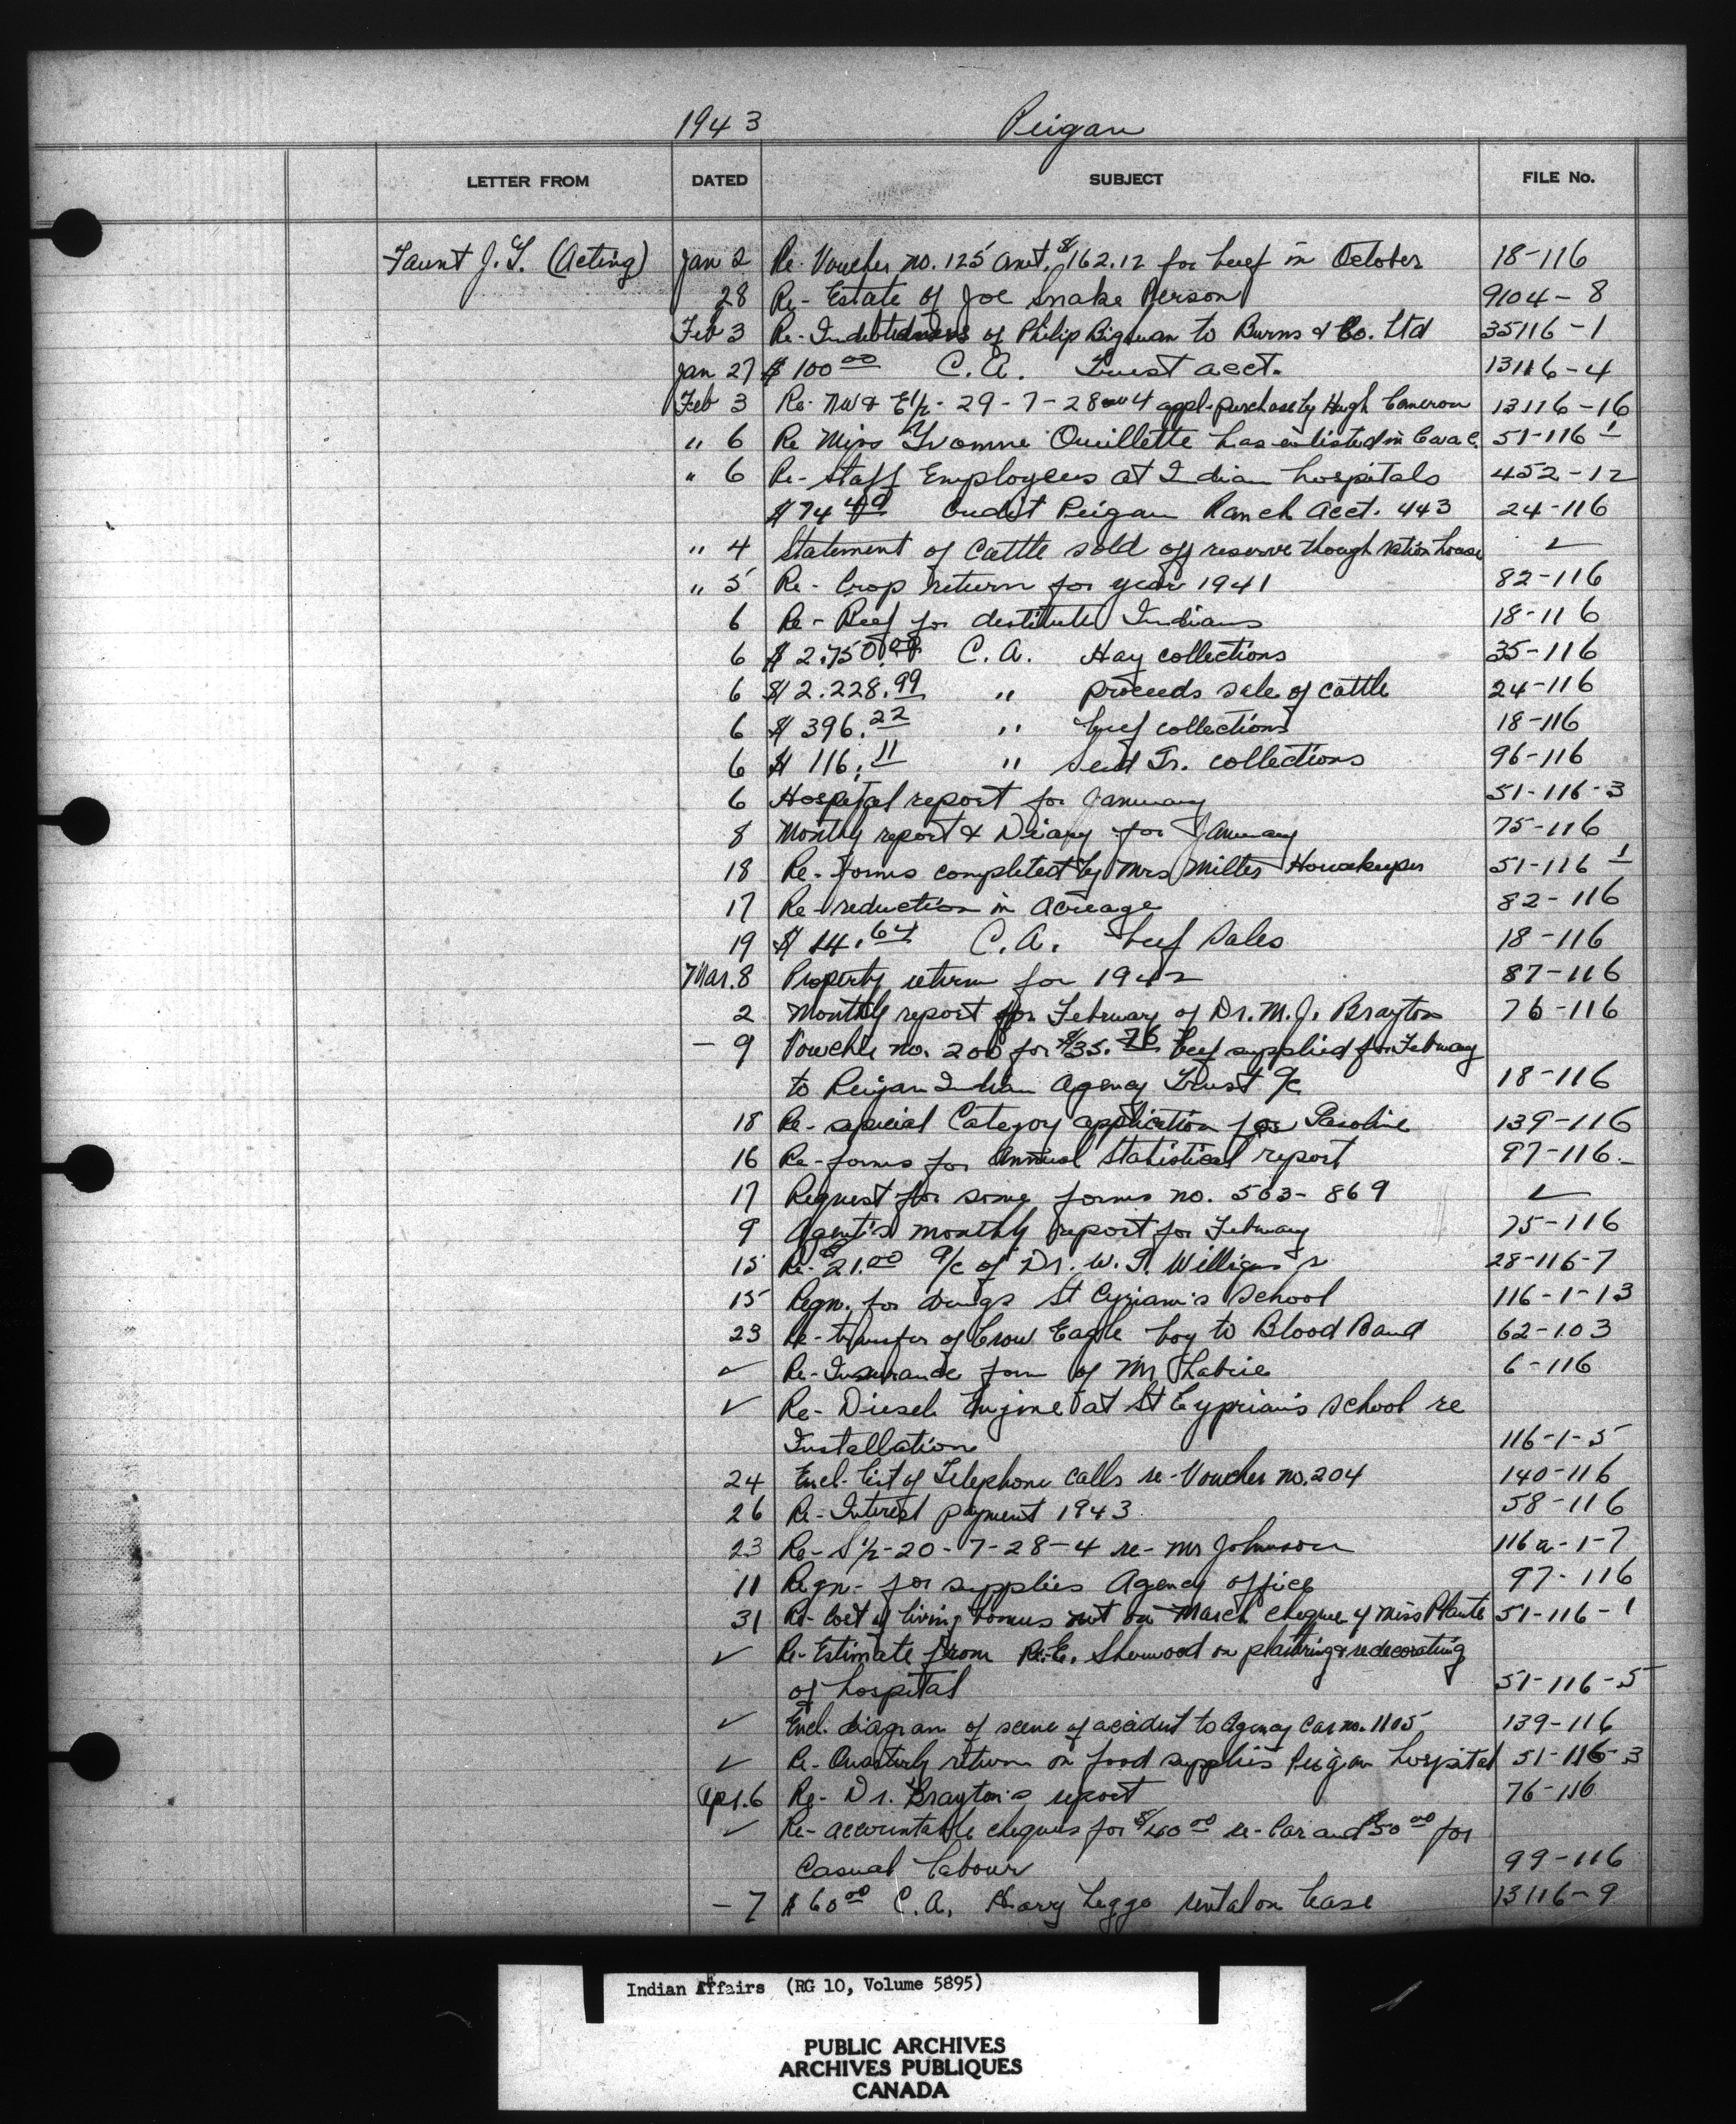 1943 Peigan
LETTER FROM DATED SUBJECT FILE No.
Faunt J.T. (Acting) Jan 2 Re. Voucher no. 125 amt. $162.12 for beef in October 18-116
28 Re- Estate of Joe Snake Person 9104-8
Feb 3 Re- Indebtedness of Philip Bigswan to Burns & Co. Ltd 35116-1
Jan 27 $100.00 C.A. Trust acct. 13116-4
Feb 3 Re- NW & E½- 29-7-28-w4 appl. purchase by Hugh Cameron 13116-16
" 6 Re Miss Yvonne Ouillette has enlisted in C.W.A.C. 51-116-1
" 6 Re- Staff Employees at Indian hospitals 452-12
$74.49 Credit Peigan Ranch Acct. 443 24-116
" 4 Statement of Cattle sold off reserve though ration house ✓
" 5 Re- Crop return for year 1941 82-116
6 Re- Beef for destitute Indians 18-116
6 $2.750.00 C.A. Hay collections 35-116
6 $2.228.99 " proceeds sale of cattle 24-116
6 $396.22 " beef collections 18-116
6 $116.11 " Seed Gr. collections 96-116
6 Hospital report for January 51-116-3
8 Monthly report & Diary for January 75-116
18 Re- forms completed by Mrs Miller Housekeeper 51-116-1
17 Re- reduction in Acreage 82-116
19 $14.64 C.A. beef Sales 18-116
Mar. 8 Property return for 1942 87-116
2 Monthly report for February of Dr. M.J. Brayton 76-116
- 9 Voucher no. 200 for $35.76 beef supplied for February
to Peigan Indian Agency Trust a/c 18-116
18 Re- special Category application for Gasoline 139-116
16 Re- forms for Annual Statistical report 97-116-
17 Request for some forms no. 563-869 ✓
9 Agent's monthly report for February 75-116
15 Re- $21.00 a/c of Dr. W. 28-116-7
15 Reqn. for drugs St Cyprian's School 116-1-13
23 Re- transfer of Crow Eagle boy to Blood Band 62-103
✓ Re- Insurance form of Mr Labrie 6-116
✓ Re- Diesel Engine at St Cyprian's School re
Installation 116-1-5
24 Encl. list of Telephone calls re- Voucher no. 204 140-116
26 Re- Interest payment 1943 58-116
23 Re- S½-20-7-28-4 re- Mr Johnson 116a-1-7
11 Reqn- for supplies Agency office 97-116
31 Re- Cost of living bonus not on March cheque of Miss Plante 51-116-1
✓ Re- Estimate from R.E. Sherwood on plastering & redecorating
of hospital 51-116-5
✓ Encl. diagram of scene of accident to Agency Car no. 1105 139-116
✓ Re- Quarterly return on food supplies Peigan hospital 51-116-3
Apr. 6 Re- Dr. Brayton's report 76-116
✓ Re- accountable cheques for $40.00 re- Car and $50.00 for
Casual labour 99-116
- 7 $60.00 C.A. Harry Leggo rental on lease 13116-9
Indian Affairs (RG 10, Volume 5895)
PUBLIC ARCHIVES
ARCHIVES PUBLIQUES
CANADA